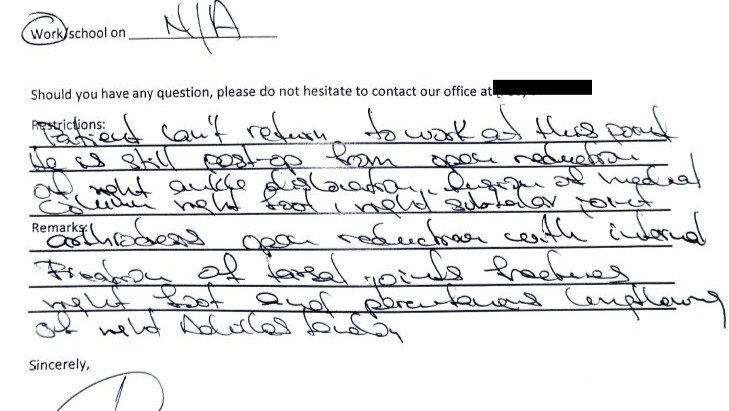 Work/school on N/A
Should you have any question, please do not hesitate to contact our office at
Restrictions:
Patient can't return to work at this point
He is still post-op from open reduction
of right ankle dislocation, fusion of medial
column right foot, right subtalar joint
Remarks:
arthrodesis open reduction with internal
fixation of tarsal joints fractures
right foot and percutaneous lengthening
of right Achilles tendon
Sincerely,